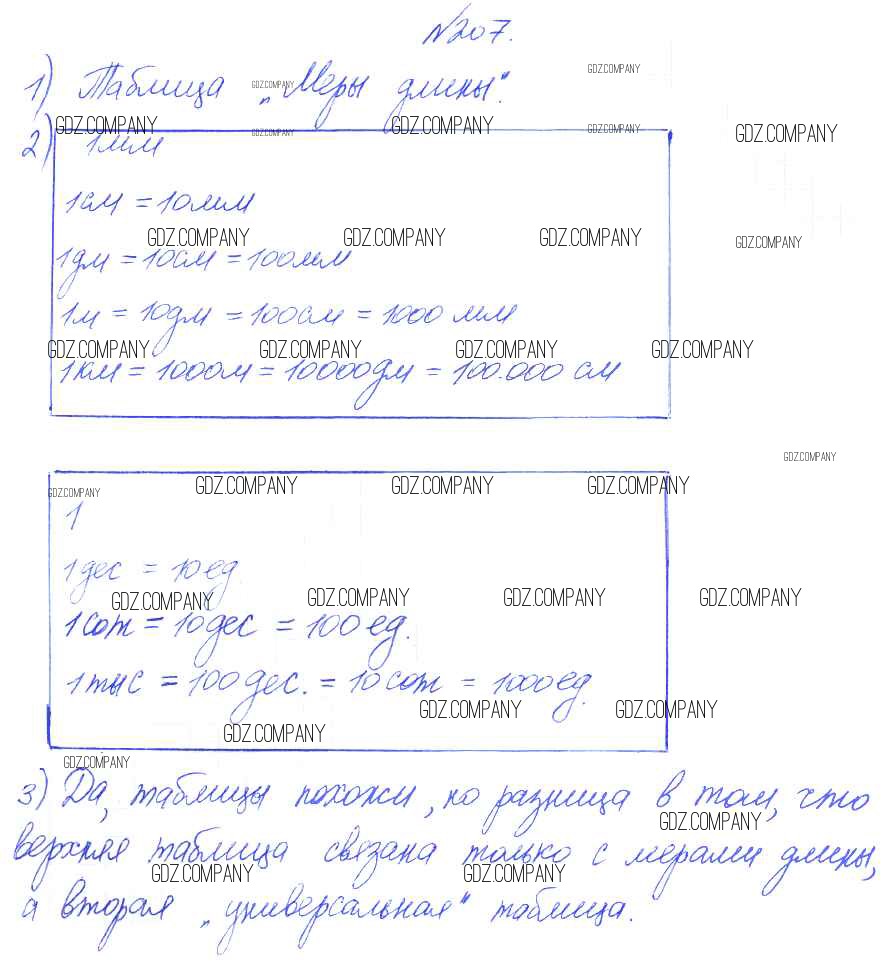 №207.
1) Таблица „Меры длины".
2) 1мм
1см = 10мм
1дм = 10см = 100мм
1м = 10дм = 100см = 1000 мм
1км = 1000м = 10000дм = 100.000 см
1
1дес = 10ед.
1сот = 10дес = 100ед.
1тыс = 100дес. = 10сот = 1000ед.
3) Да, таблицы похожи, но разница в том, что
верхняя таблица связана только с мерами длины,
а вторая „универсальная" таблица.
GDZ.COMPANY